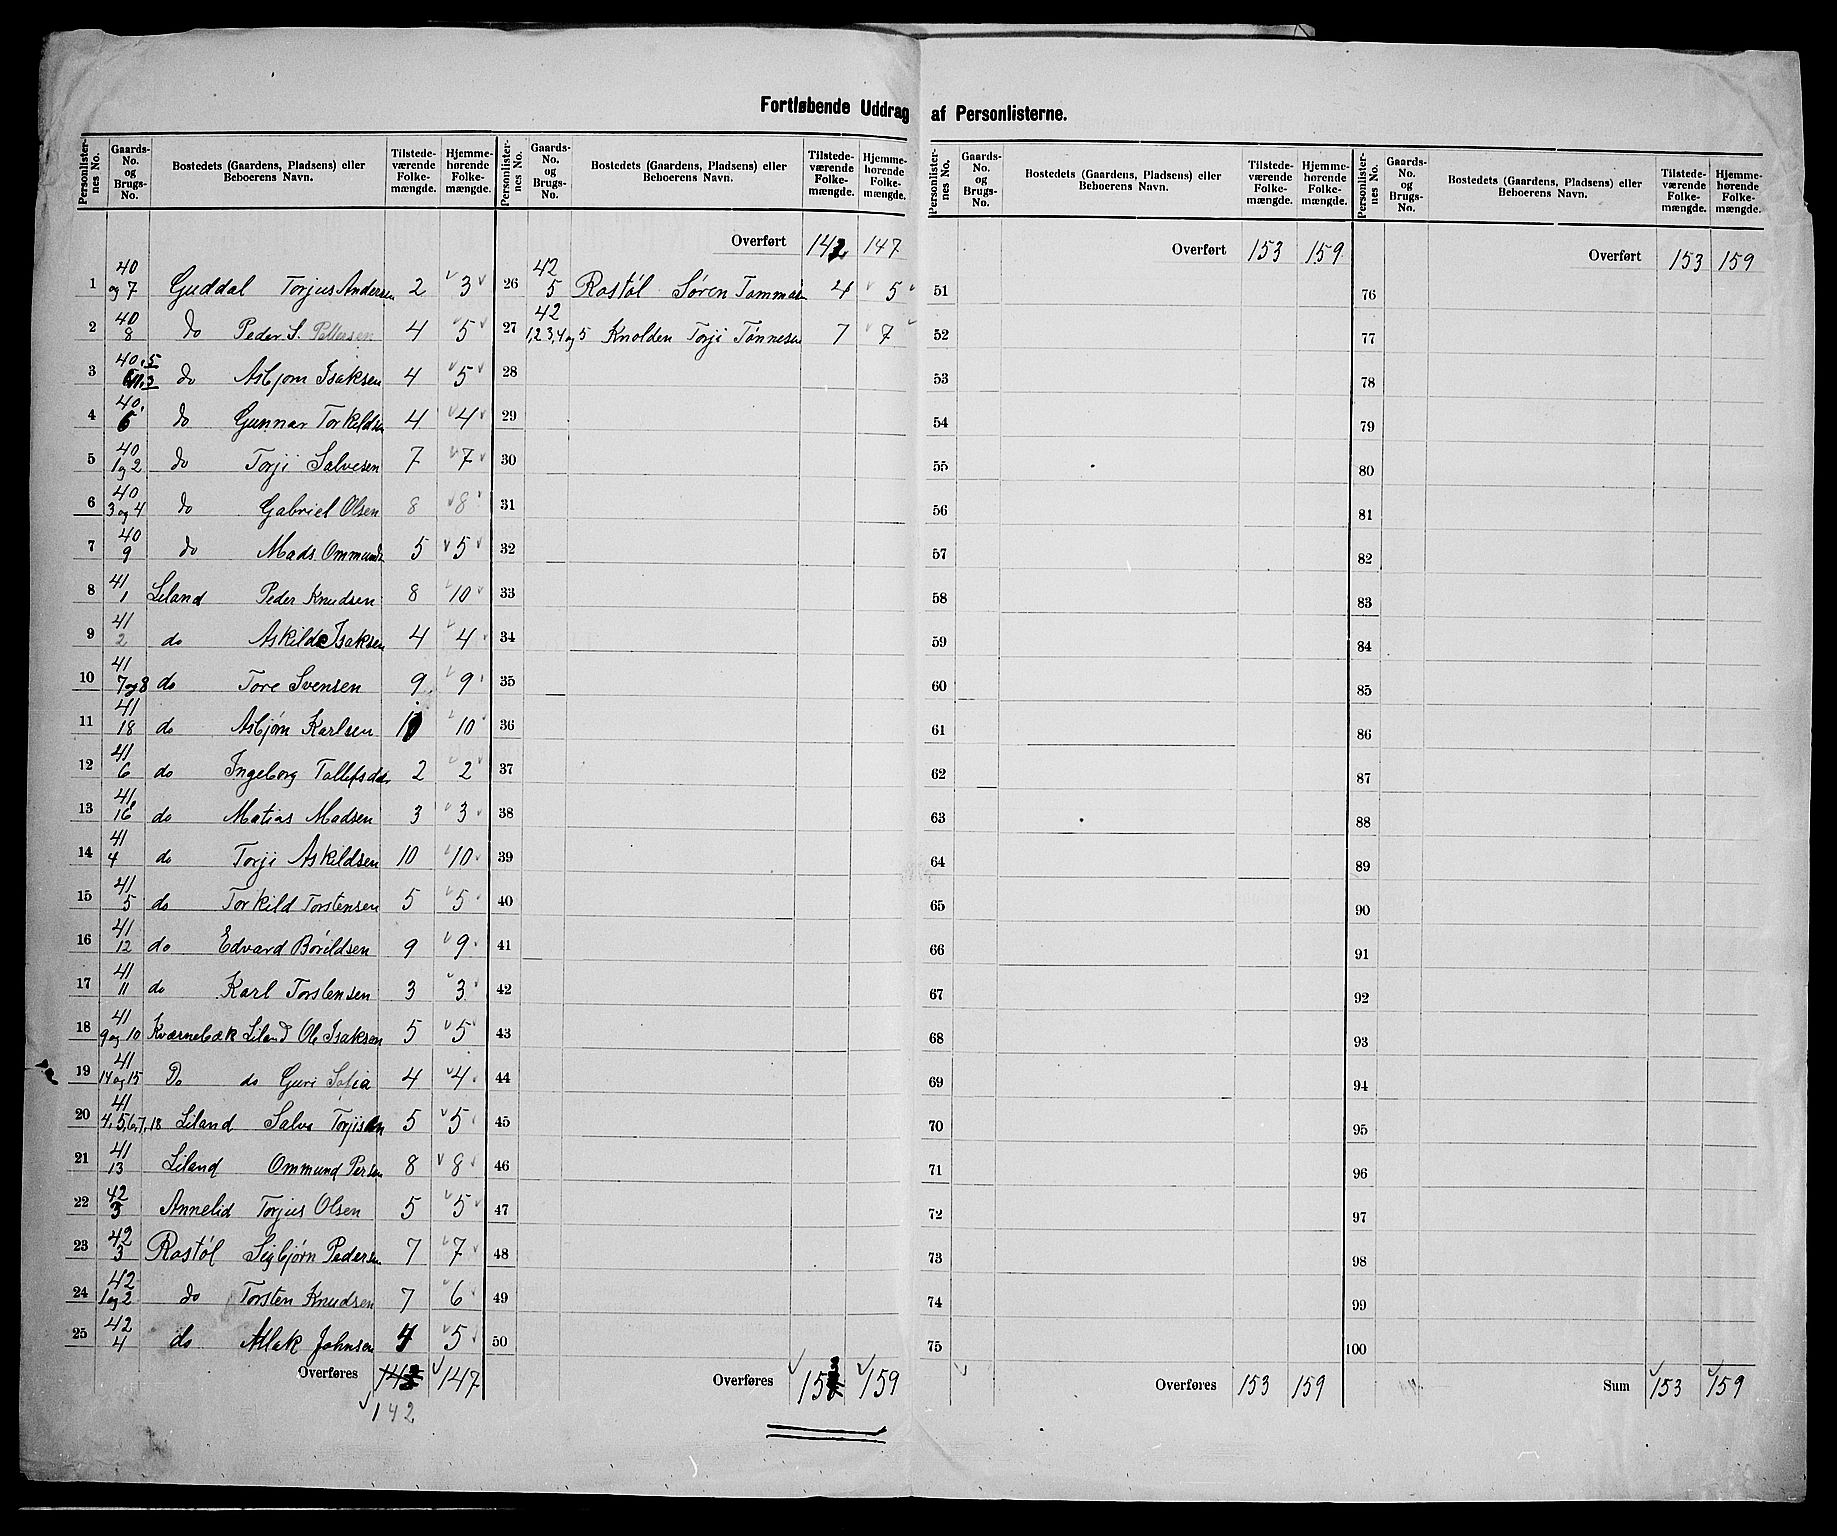 Fortløbende Uddrag af Personlisterne.
Personlister-nes No. Gaards-No. og Brugs-No. Bostedets (Gaardens, Pladsens) eller Beboerens Navn. Tilstede-værende Folke-mængde. Hjemme-hørende Folke-mængde.
1 40 og 7 Guddal Torjus Andersen 2 3
2 40 8 do Peder S. Pettersen 4 5
3 40, 5 do Asbjørn Isaksen 4 5
4 40, 6 do Gunnar Torkildsen 4 4
5 40 1 og 2 do Torji Salvesen 7 7
6 40 3 og 4 do Gabriel Olsen 8 8
7 40 9 do Mads Ommunds 5 5
8 41 1 Liland Peder Knudsen 8 10
9 41 2 do Askild Isaksen 4 4
10 41 7 og 8 do Tore Svensen 9 9
11 41 18 do Asbjørn Karlsen 10 10
12 41 6 do Ingeborg Tallefsdar 2 2
13 41 16 do Matias Madsen 3 3
14 41 4 do Torji Askildsen 10 10
15 41 5 do Torkild Torstensen 5 5
16 41 12 do Edvard Bórildsen 9 9
17 41 11 do Karl Torstensen 3 3
18 41 9 og 10 Kværnebæk Liland Ole Isaksen 5 5
19 41 14 og 15 Do do Guri Sofia 4 4
20 41 4, 5, 6, 7, 18 Liland Salve Torjisen 5 5
21 41 13 Liland Ommund Persen 8 8
22 42 3 Annelid Torjus Olsen 5 5
23 42 3 Rostøl Sigbjørn Pedersen 7 7
24 42 1 og 2 do Torsten Knudsen 7 6
25 42 4 do Atlak Johnsen 4 5
Overføres 147
142
Personlister-nes No. Gaards-No. og Brugs-No. Bostedets (Gaardens, Pladsens) eller Beboerens Navn. Tilstede-værende Folke-mængde. Hjemme-hørende Folke-mængde.
Overført 142 147
26 42 5 Rostøl Søren Tommasen 4 5
27 42 1, 2 3, 4 og 5 Knolden Torji Tønnesen 7 7
28
29
30
31
32
33
34
35
36
37
38
39
40
41
42
43
44
45
46
47
48
49
50
Overføres 153 159
Personlister-nes No. Gaards-No. og Brugs-No. Bostedets (Gaardens, Pladsens) eller Beboerens Navn. Tilstede-værende Folke-mængde. Hjemme-hørende Folke-mængde.
Overført 153 159
51
52
53
54
55
56
57
58
59
60
61
62
63
64
65
66
67
68
69
70
71
72
73
74
75
Overføres 153 159
Personlister-nes No. Gaards-No. og Brugs-No. Bostedets (Gaardens, Pladsens) eller Beboerens Navn. Tilstede-værende Folke-mængde. Hjemme-hørende Folke-mængde.
Overført 153 159
76
77
78
79
80
81
82
83
84
85
86
87
88
89
90
91
92
93
94
95
96
97
98
99
100
Sum 153 159